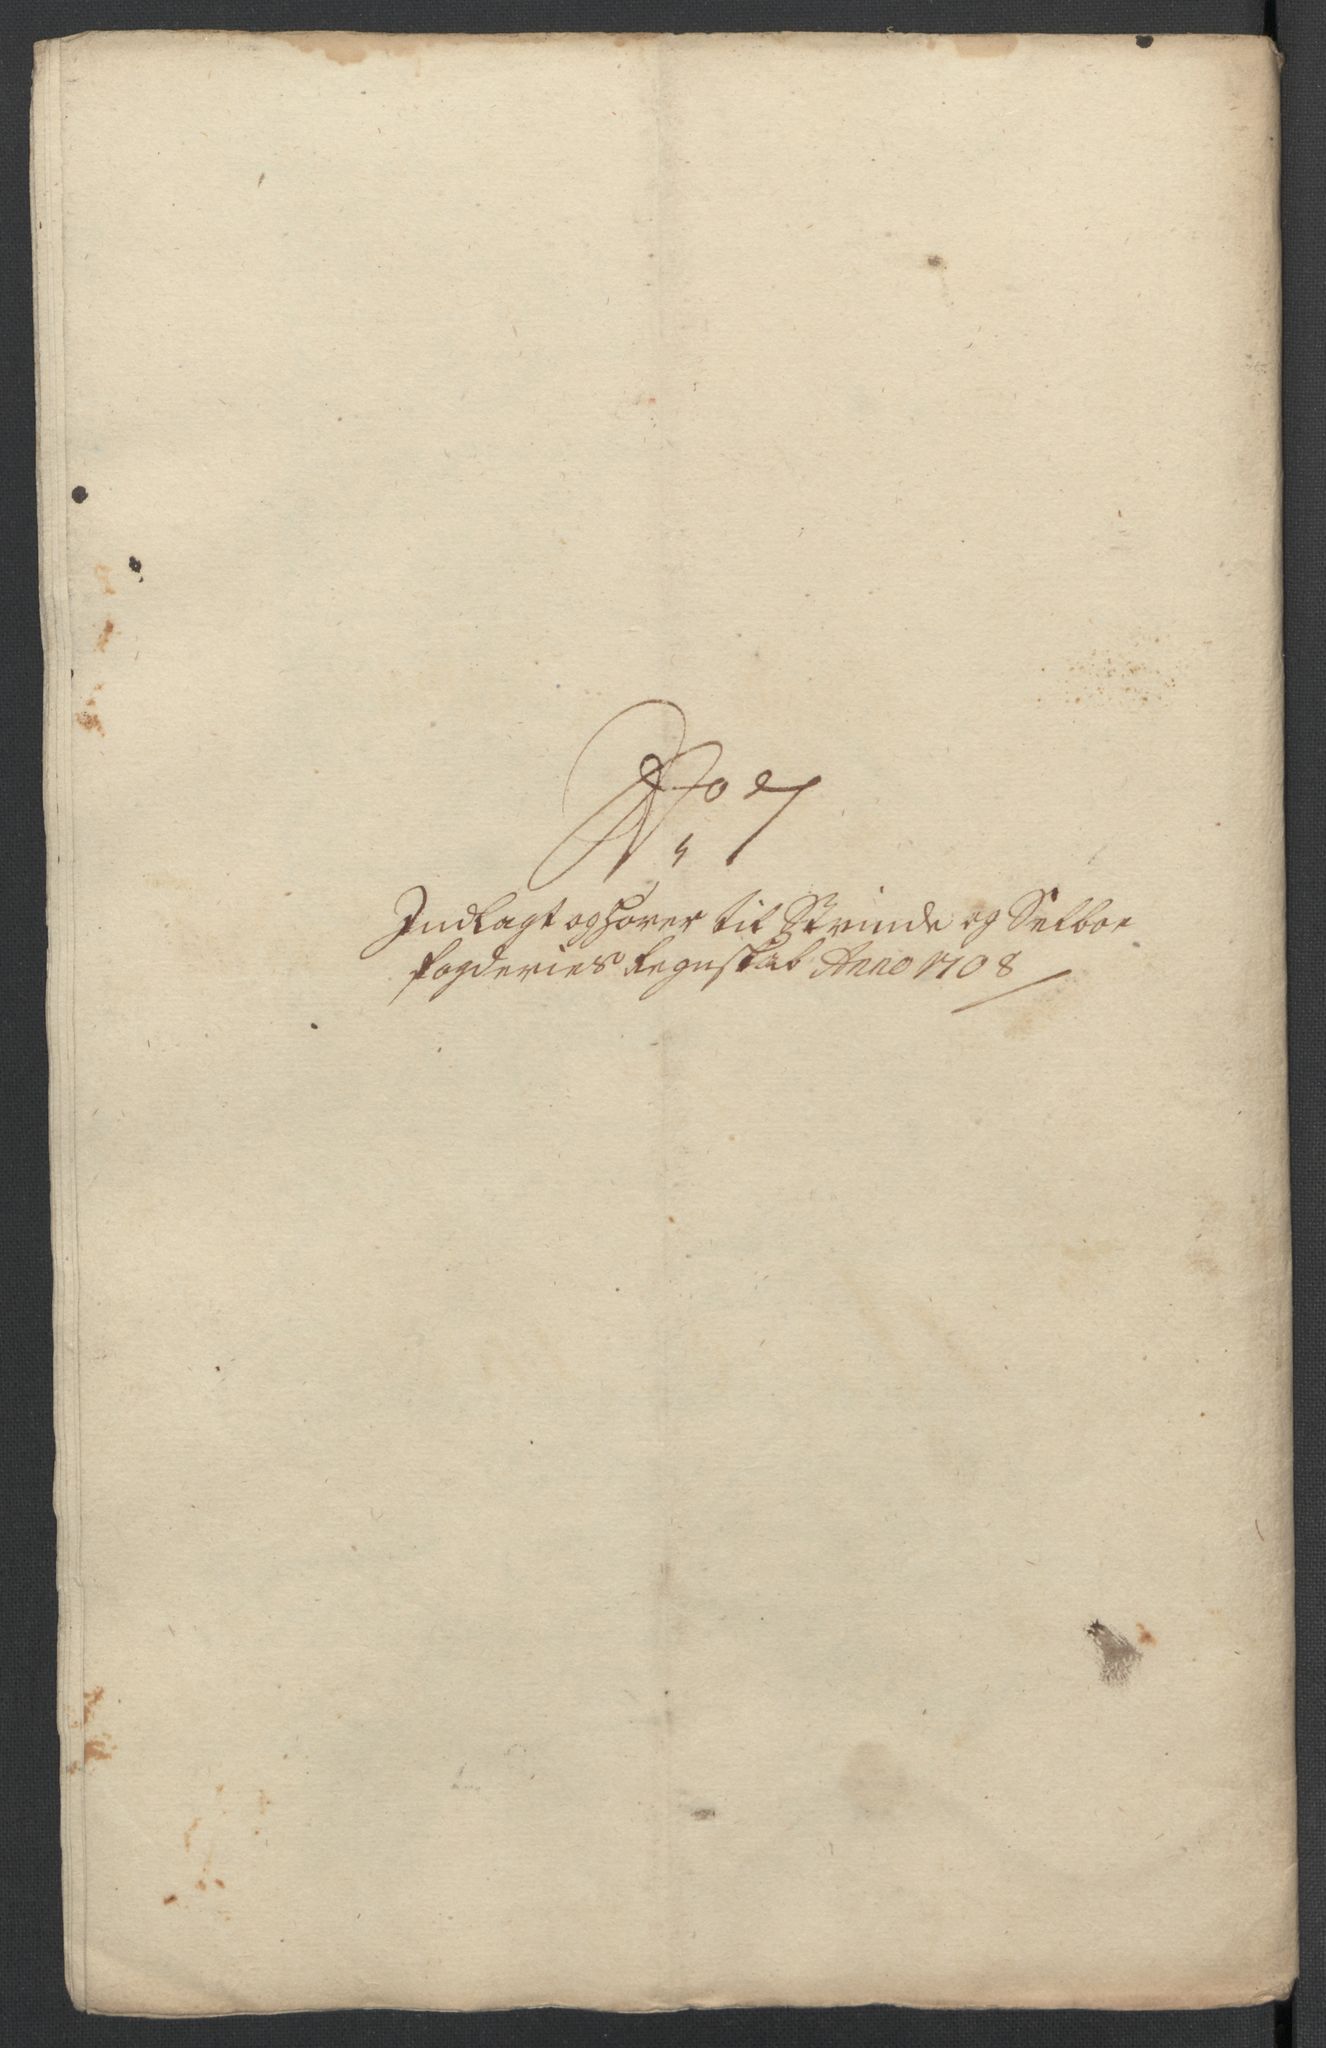 No 7
Indlagt og hører til Strinde og Selboe
fogderies Regnskab Anno 1708